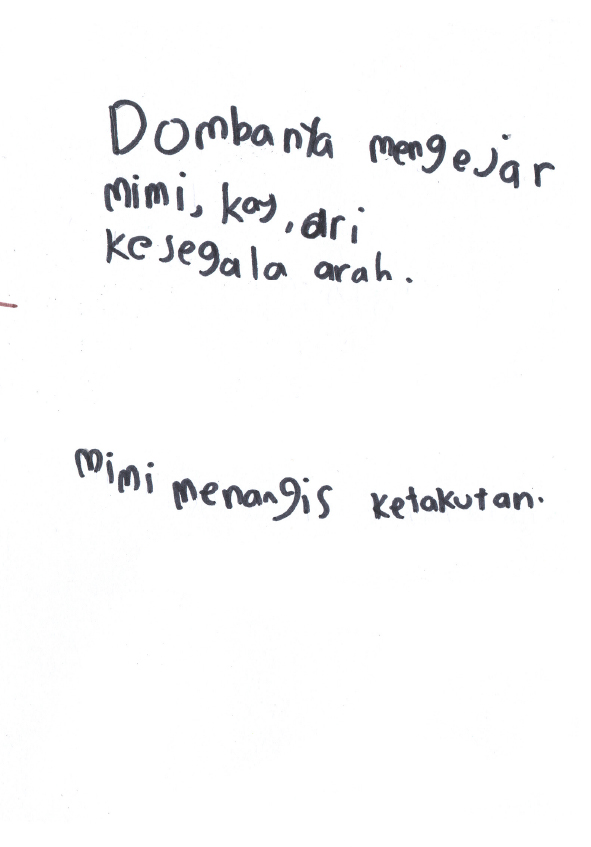 Dombanya mengejar
mimi, kay, dri
kesegala arah.
mimi menangis ketakutan.